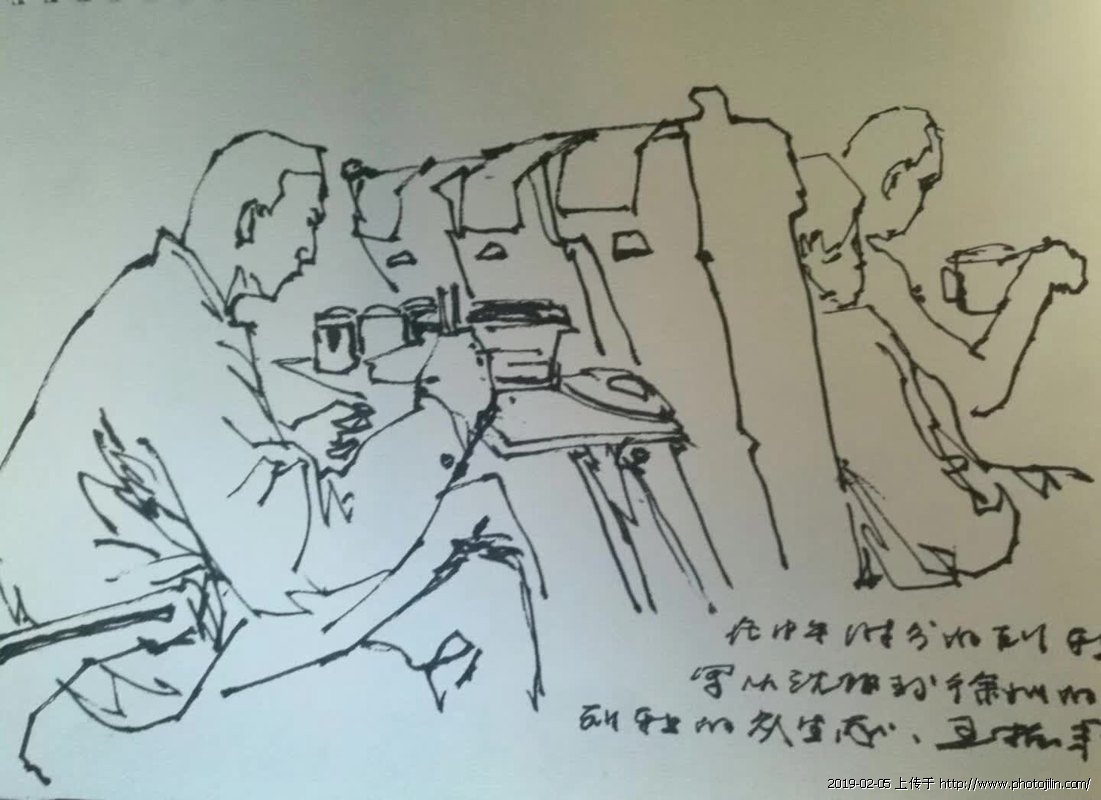 在中午时分的列车
写从沈阳到徐州的
列车的众生态、
2019-02-05 上传于 http://www.photojilin.com/